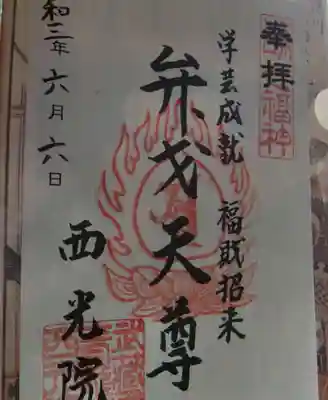 奉拝
学芸成就 福財招来
弁才天尊
西光院
和三年六月六日